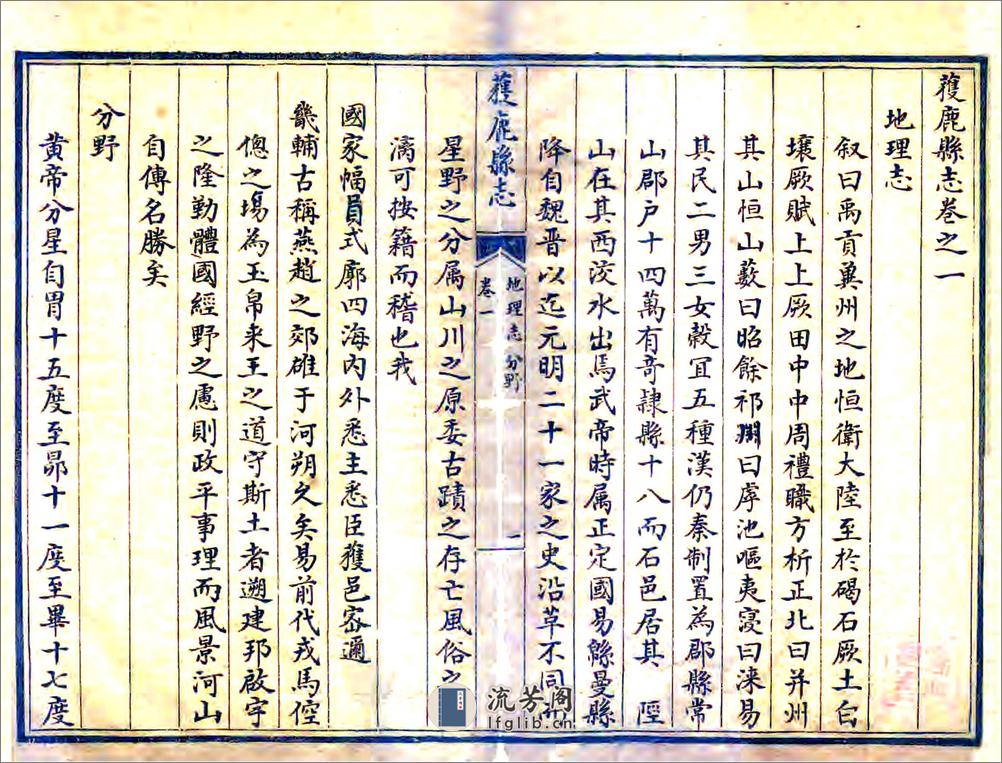 蒦鹿縣志卷之一
地理志
叙曰禹貢冀州之地恒衛大陸至於碣石厥土白
壤厥賦上上厥田中中周禮職方析正北曰并州
其山恒山藪曰昭餘祁川曰虖池嘔夷寖曰淶易
其民二男三女穀宜五種漢仍秦制置為郡縣常
山郡户十四萬有竒隷縣十八而石邑居其一陘
山在其西洨水出焉武帝時属正定國易緜曼縣
降自魏晋以迄元明二十一家之史沿革不同而
蒦鹿縣志
卷一
地理志 分野
一
星野之分属山川之原委古蹟之存亡風俗之
漓可按籍而稽也我
國家幅員式廓四海内外悉主悉臣獲邑宻邇
畿輔古稱燕趙之郊雄于河朔久矣易前代戎馬倥
傯之場為玉帛来王之道守斯土者遡建邦啟宇
之隆勤體國經野之慮則政平事理而風景河山
自傳名勝矣
分野
黄帝分星自胃十五度至昴十一度至畢十七度
流芳阁
lfglib.cn